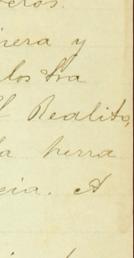 eros.
nera y
los tra
El Realito,
la perra
cia. A